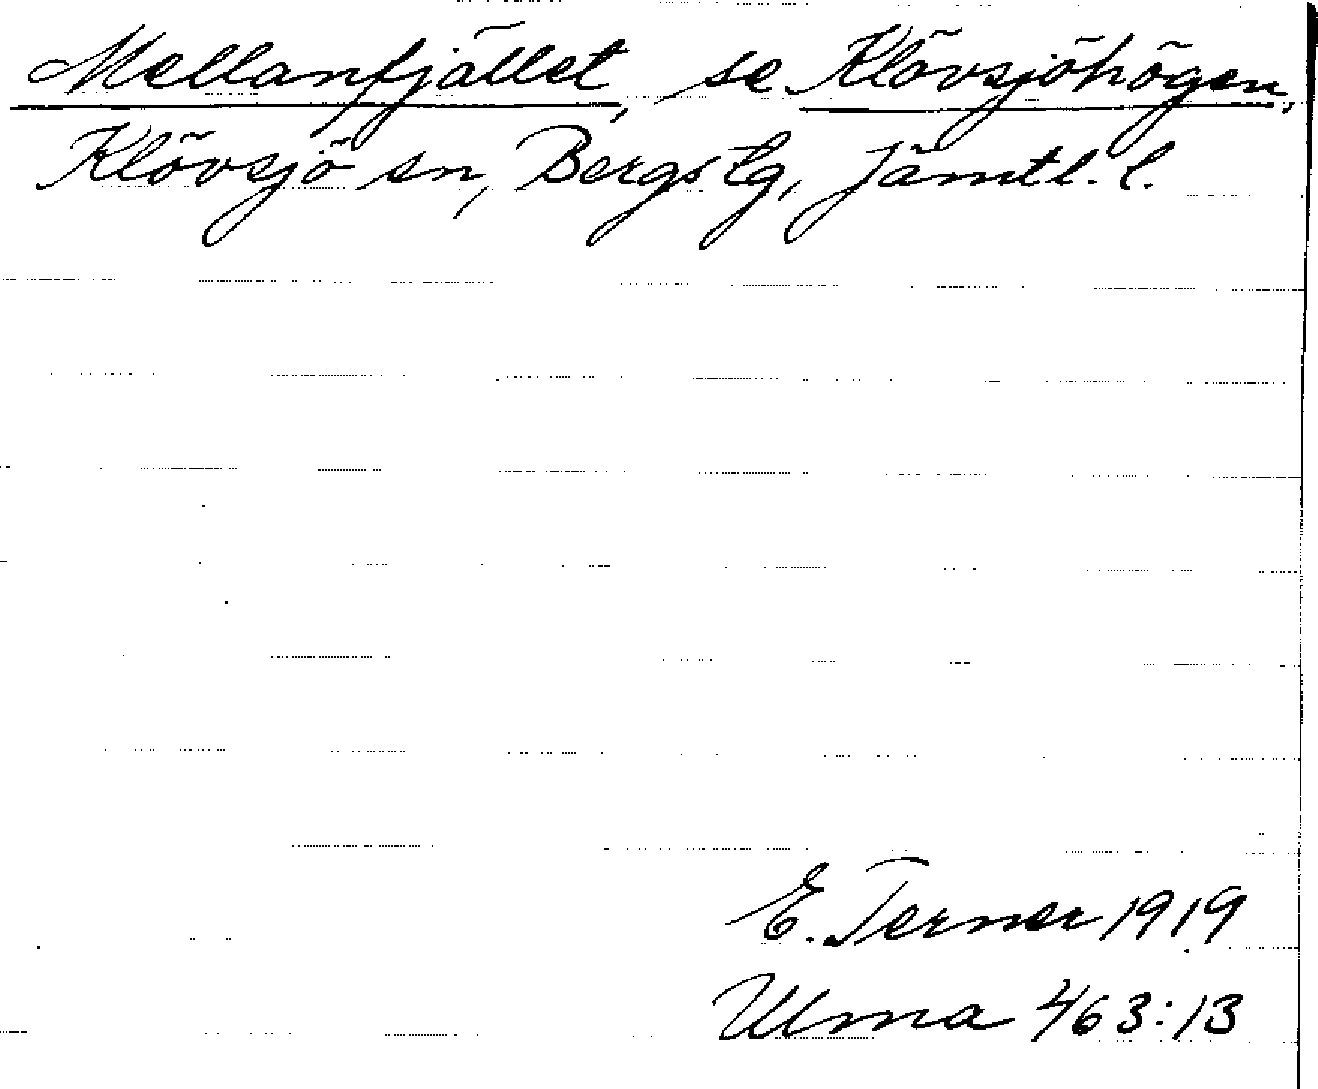 Mellanfjället, se Klövsjöhögen,
Klövsjö sn, Bergs tg, Jämtl. l.
E. Terner 1919
Ulma 463:13